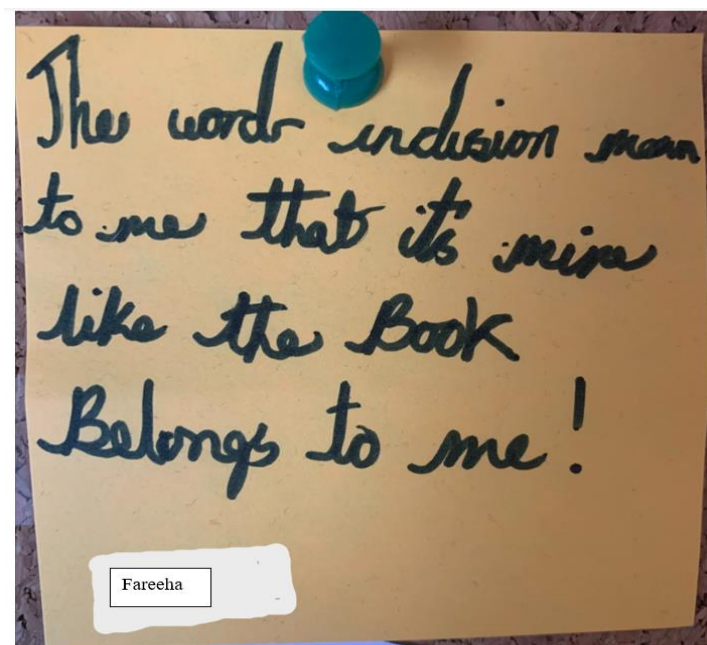 The word inclusion mean
to me that it's mine
like the Book
Belongs to me!
Fareeha